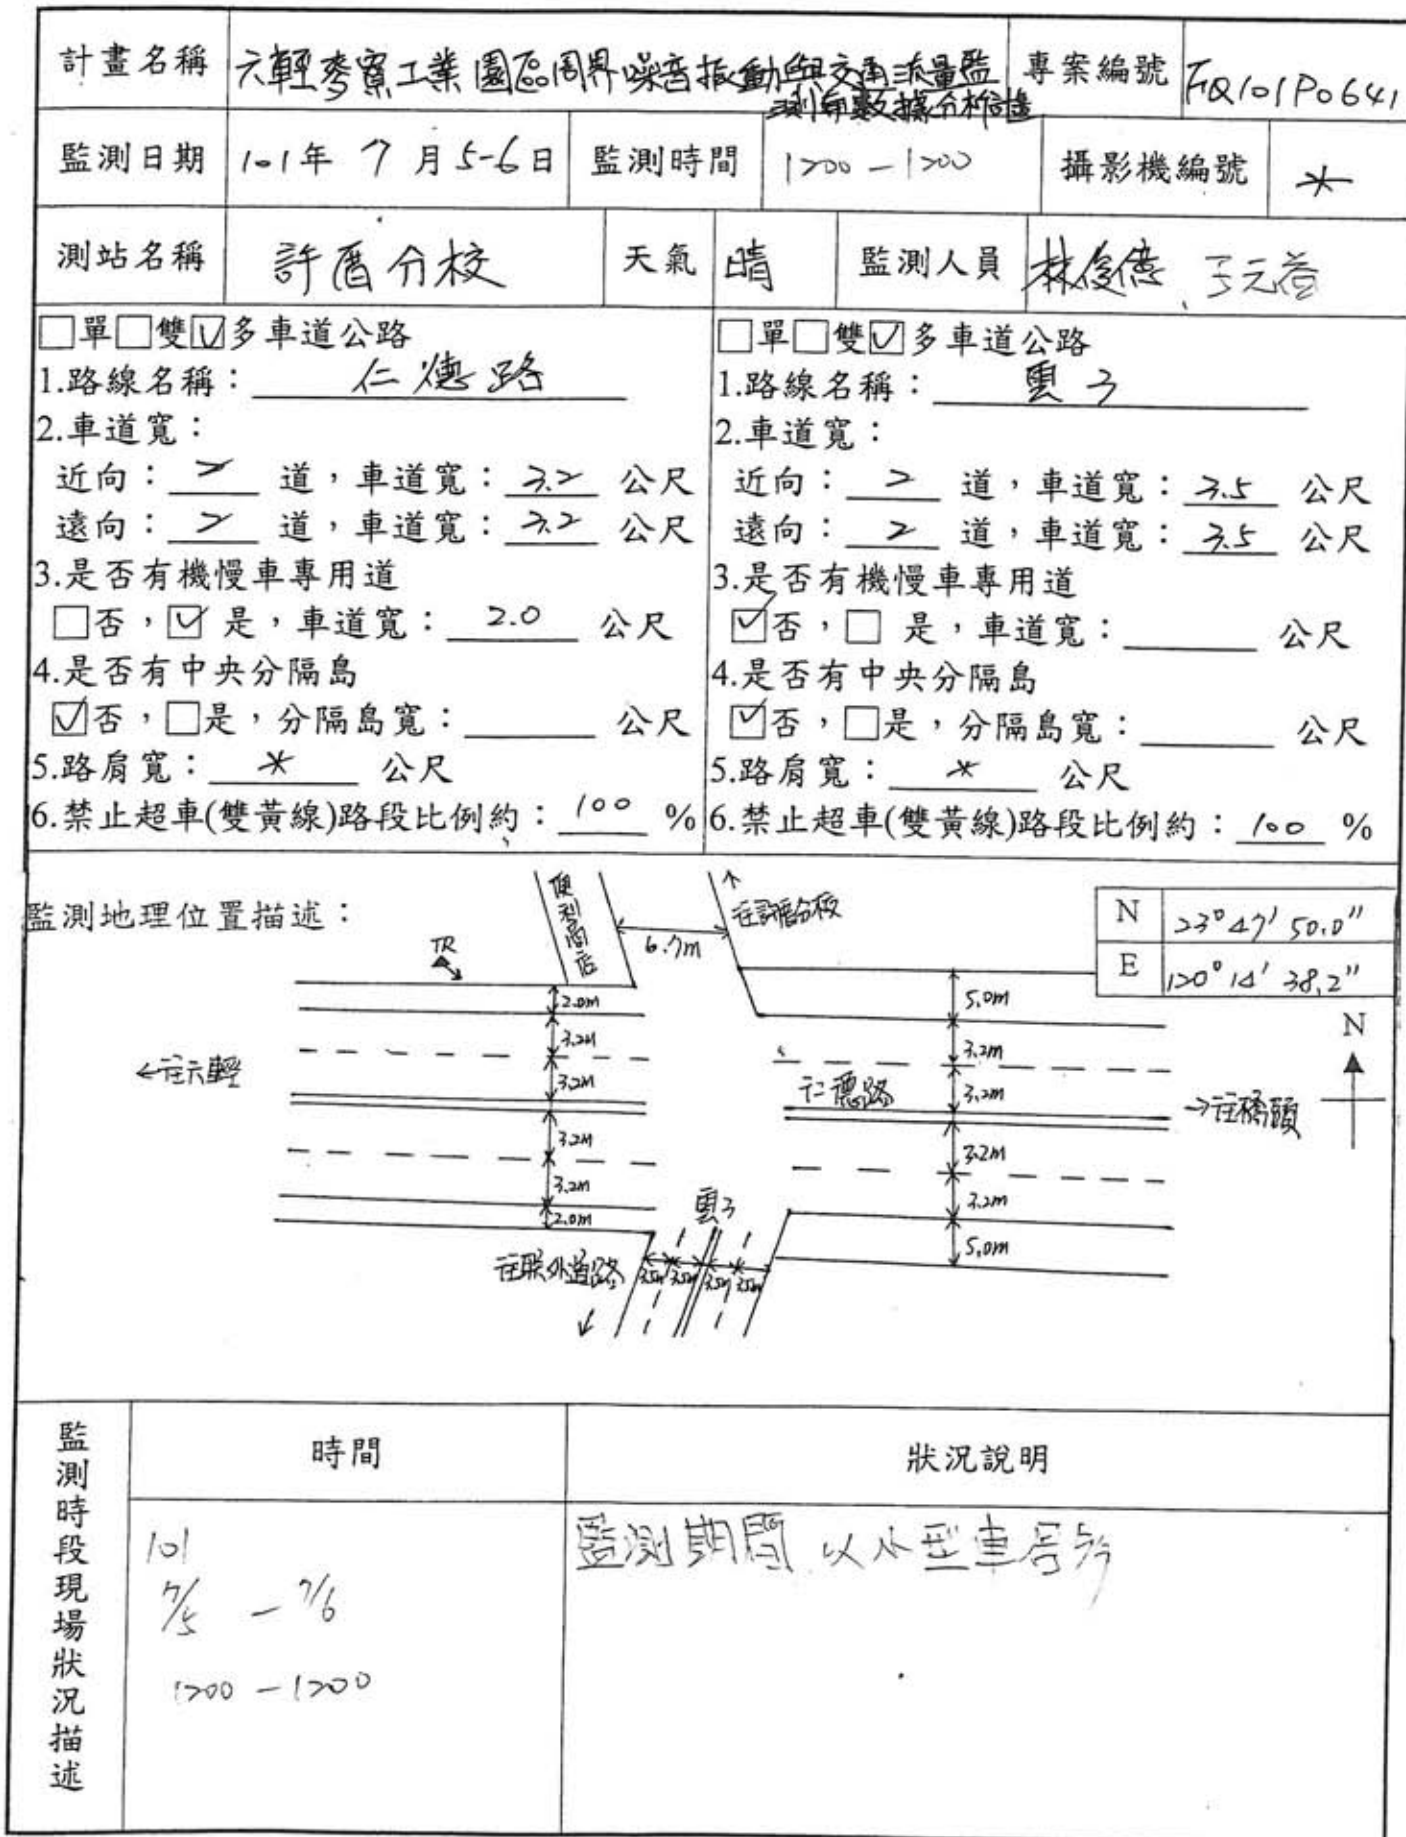 計畫名稱 六輕麥寮工業園區周界噪音振動與交通流量監測與數據分析計畫 專案編號 FQ101P0641
監測日期 101年 7月5-6日 監測時間 1200-1200 攝影機編號 *
測站名稱 許厝分校 天氣 晴 監測人員 林俊
□單□雙☑多車道公路
1.路線名稱：仁德路
2.車道寬：
近向：2 道，車道寬：3.2 公尺
遠向：2 道，車道寬：3.2 公尺
3.是否有機慢車專用道
□否，☑是，車道寬：2.0 公尺
4.是否有中央分隔島
☑否，□是，分隔島寬：______ 公尺
5.路肩寬：* 公尺
6.禁止超車(雙黃線)路段比例約：100 %
□單□雙☑多車道公路
1.路線名稱：雲3
2.車道寬：
近向：2 道，車道寬：3.5 公尺
遠向：2 道，車道寬：3.5 公尺
3.是否有機慢車專用道
☑否，□ 是，車道寬：______ 公尺
4.是否有中央分隔島
☑否，□是，分隔島寬：______ 公尺
5.路肩寬：* 公尺
6.禁止超車(雙黃線)路段比例約：100 %
監測地理位置描述：
N 23°47'50.0"
E 120°14'38.2"
便利商店
6.7m
往許厝分校
TR
N
2.0m
3.2m
3.2m
3.2m
3.2m
2.0m
5.0m
3.2m
3.2m
3.2m
3.2m
5.0m
←往六輕
仁德路
→往橋頭
雲3
往聯外道路
3.5m 3.5m 3.5m 3.5m
監測時段現場狀況描述
時間
狀況說明
101
7/5 - 7/6
1200-1200
監測期間以小型車居多